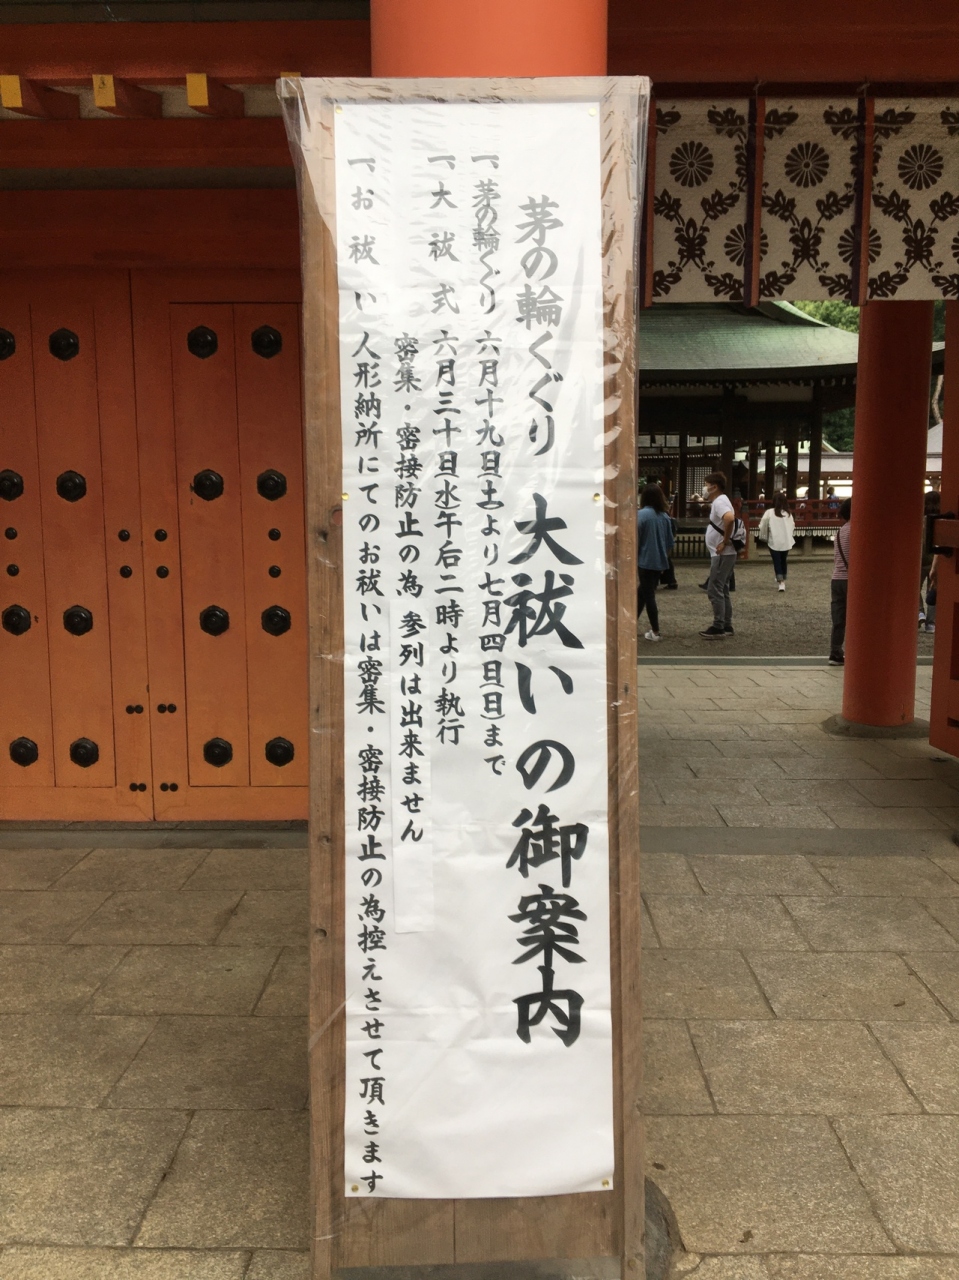 茅の輪くぐり 大祓いの御案内
一、茅の輪くぐり 六月十九日(土)より七月四日(日)まで
一、大祓式 六月三十日(水)午后二時より執行
密集・密接防止の為 参列は出来ません
一、お祓い 人形納所にてのお祓いは密集・密接防止の為控えさせて頂きます